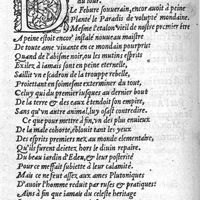 du tout.
Le Febure souuerain, encor auoit à peine
Planté le Paradis de volupté mondaine,
Mesme l'estalon vieil de nostre premier estre
A peine estoit encor' installé nouueau maistre
De toute ame viuante en ce mondain pourpris
Quand de l'abisme noir, eu les mutins esprits
Exilez à iamais sont en peine eternelle,
Saillit vn scadron de la trouppe rebelle,
Proiettant en soimesme exterminer du tout,
Celuy qui du premier iusques au dernier bout
De la terre & des eaux estendoit son empire,
Sans qu'vn autre animal, luy osast contredire.
Ce que pour mettre à fin, vn des plus ennieux
De la male cohorte, esblouit tant les yeux
Des esprits premiers nez au monde elementaire,
Qu'ils furent deietez, hors le diuin repaire,
Du beau iardin d'Eden, & leur posterité
Pour ce meffait subiette à leur calamité.
Mais ce ne fut assez, aux ames Plutoniques
D'auoir l'homme reduit par ruses & pratiques:
Ains à fin que iamais du celeste heritage